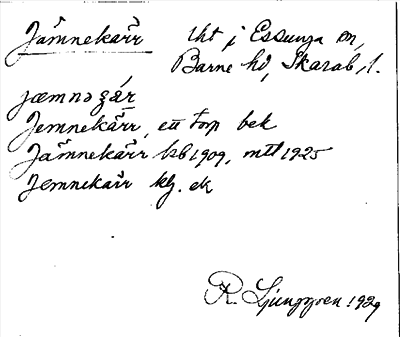 Jämnekärr Uht i Essunga sn,
Barne hd, Skarab. l.
jæmnə
Jemnekärr, ett torp bek
Jämnekärr kb 1909, mtl 1925
Jemnekärr klg. ek
R. Ljunggren 1929